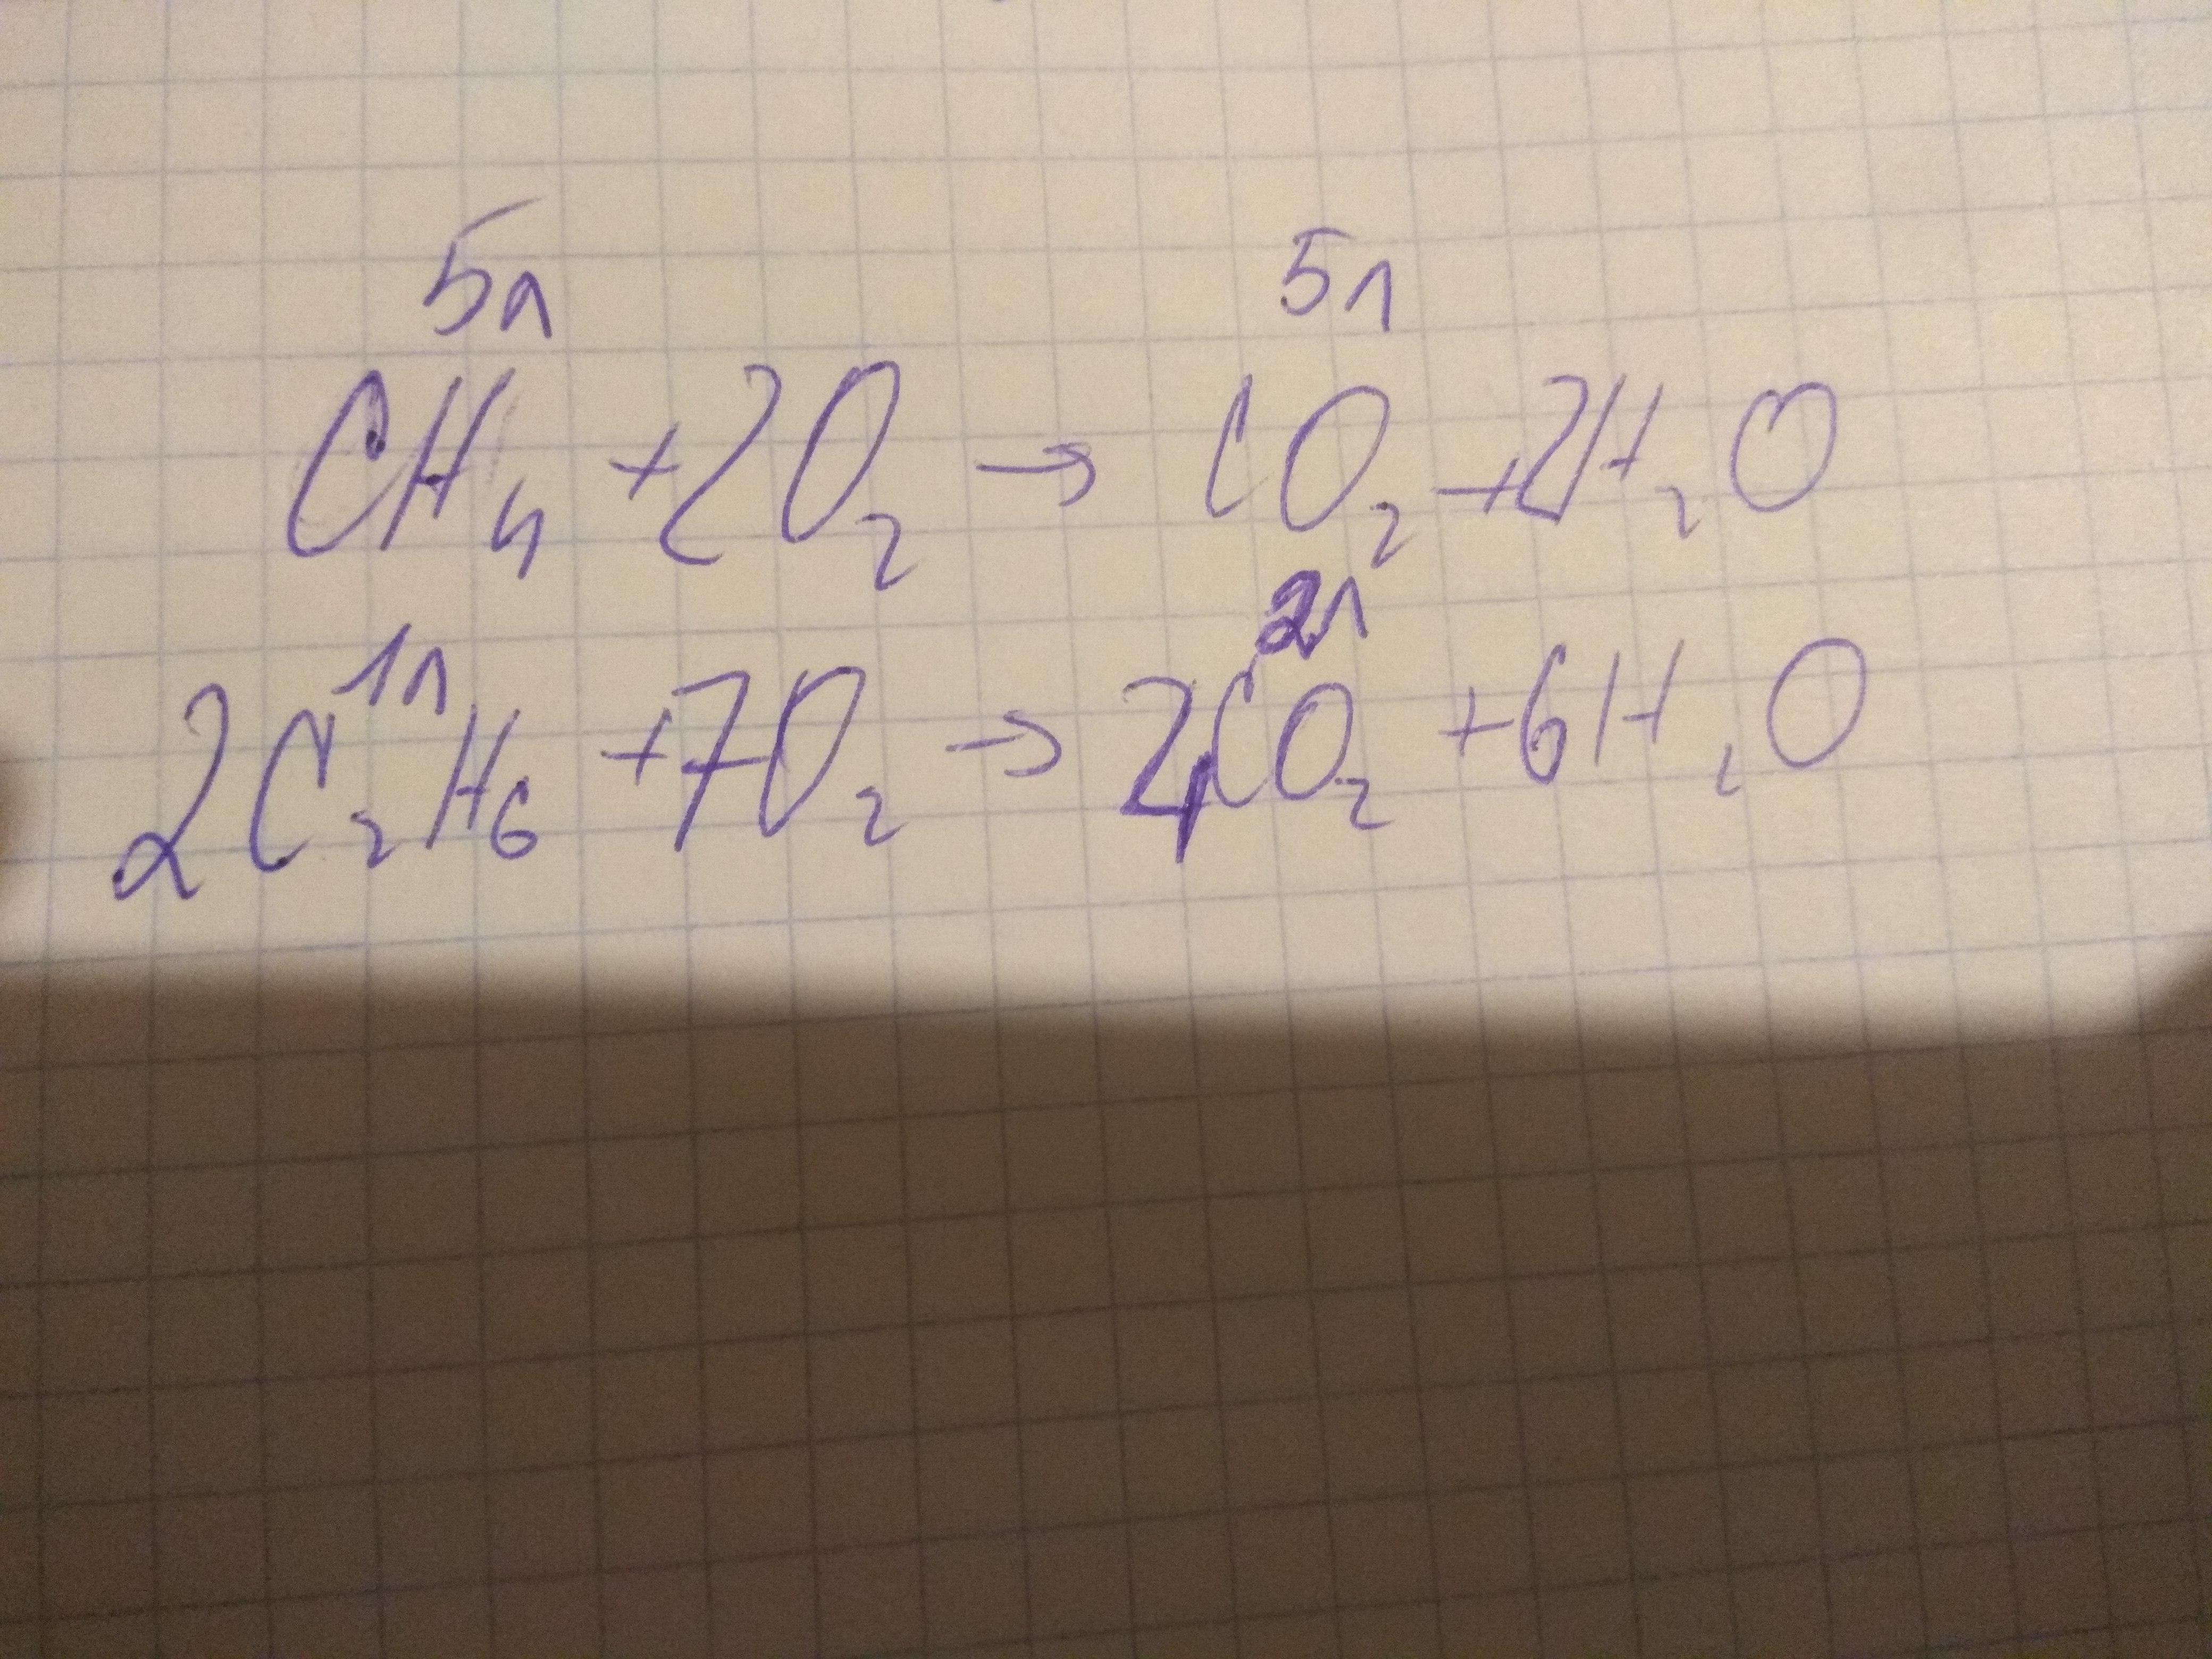 5л 5л
CH₄ + 2O₂ → CO₂ + 2H₂O
1л 2л
2C₂H₆ + 7O₂ → 4CO₂ + 6H₂O